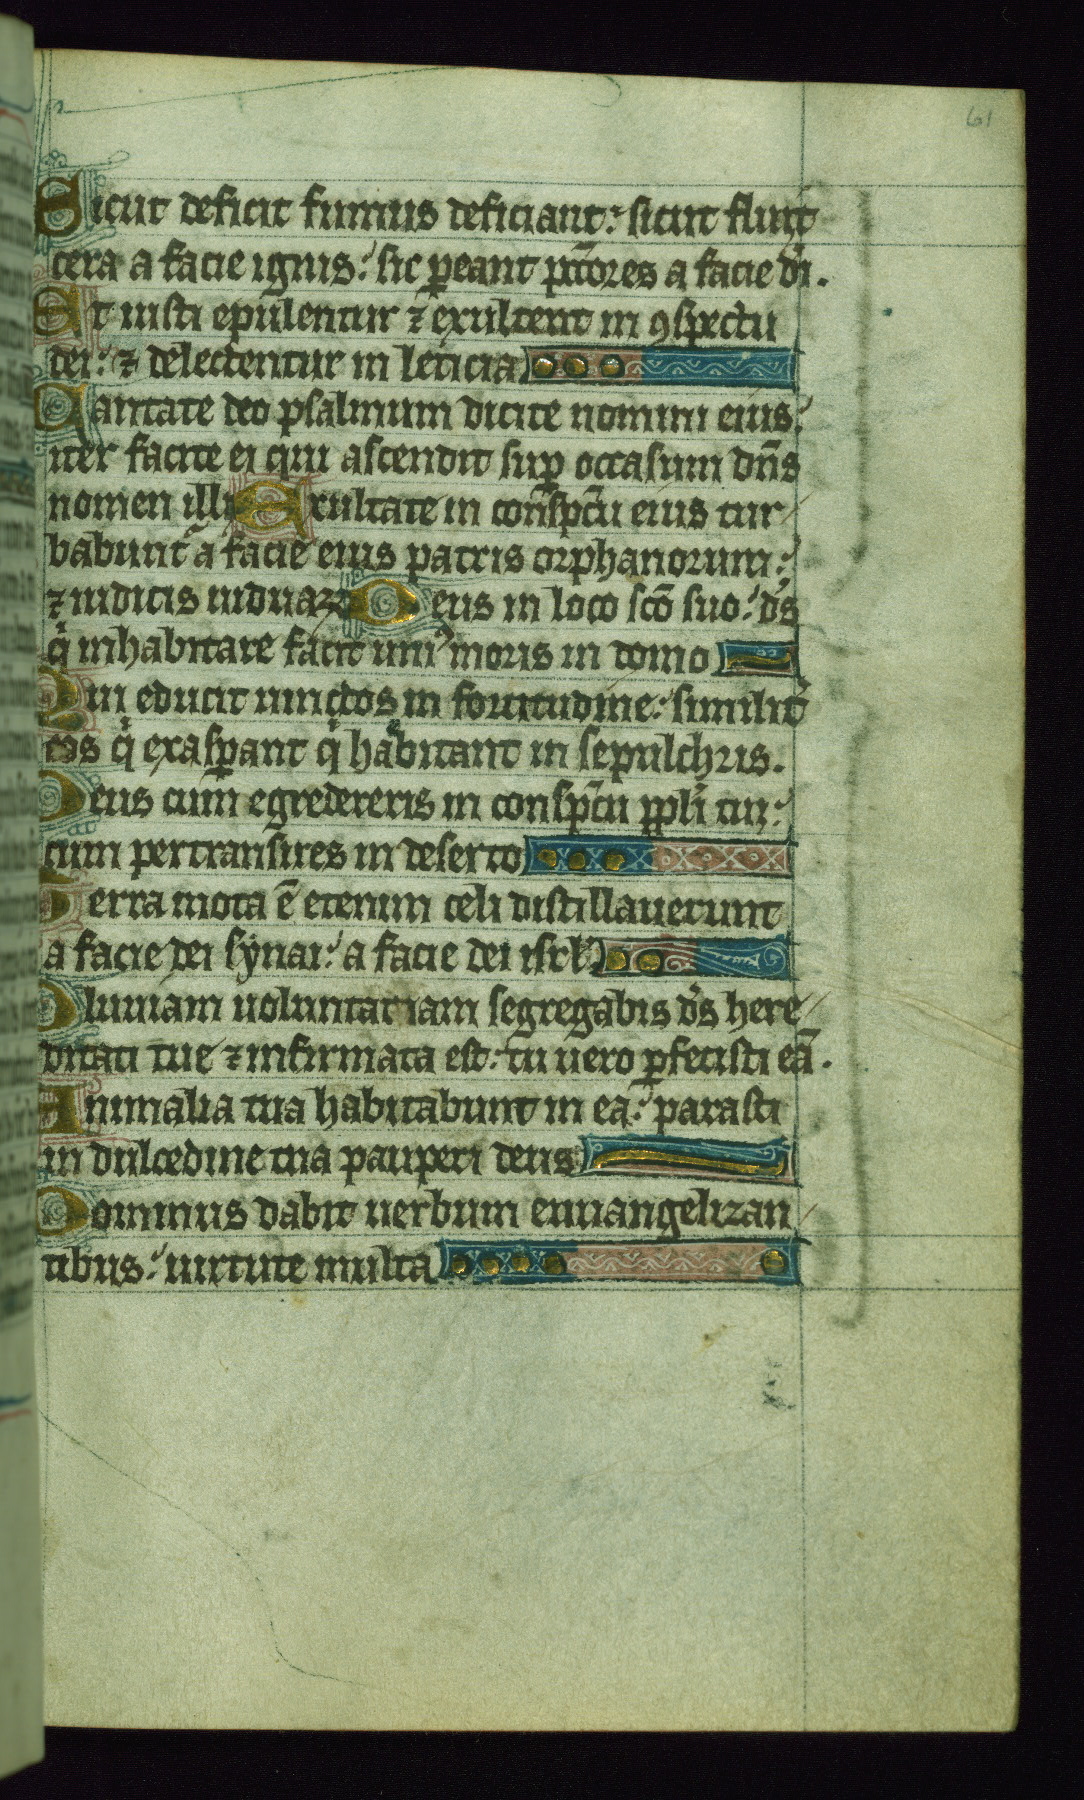 61
Sicut deficit fumus deficiant: sicut fluit
cera a facie ignis: sic ꝑeant pct̄ores a facie dī.
Et iusti epulentur ⁊ exultent in ꝯspectu
dei: ⁊ delectentur in leticia
Cantate deo psalmum dicite nomini eius:
iter facite ei qui ascendit suꝑ occasum dn̄s
nomen illi Exultate in conspc̄u eius tur
babunt̄ a facie eius patris orphanorum:
⁊ iudicis uiduaꝝ Deus in loco sc̄o suo: ds̄
qⁱ inhabitare facit uniꝰ moris in domo
Qui educit uinctos in fortitudine: similit̄
eos qⁱ exasꝑant qⁱ habitant in sepulchris.
Deus cum egredereris in conspc̄u ppli tui:
cum pertransires in deserto
Terra mota ē etenim celi distillauerunt
a facie dei synai: a facie dei isrl
Pluuiam uoluntariam segregabis ds̄ here
ditati tue ⁊ infirmata est: tu uero ꝑfecisti eā.
Animalia tua habitabunt in ea: parasti
in dulcedine tua pauperi deus
Dominus dabit uerbum euuangelizan
tibus: uirtute multa